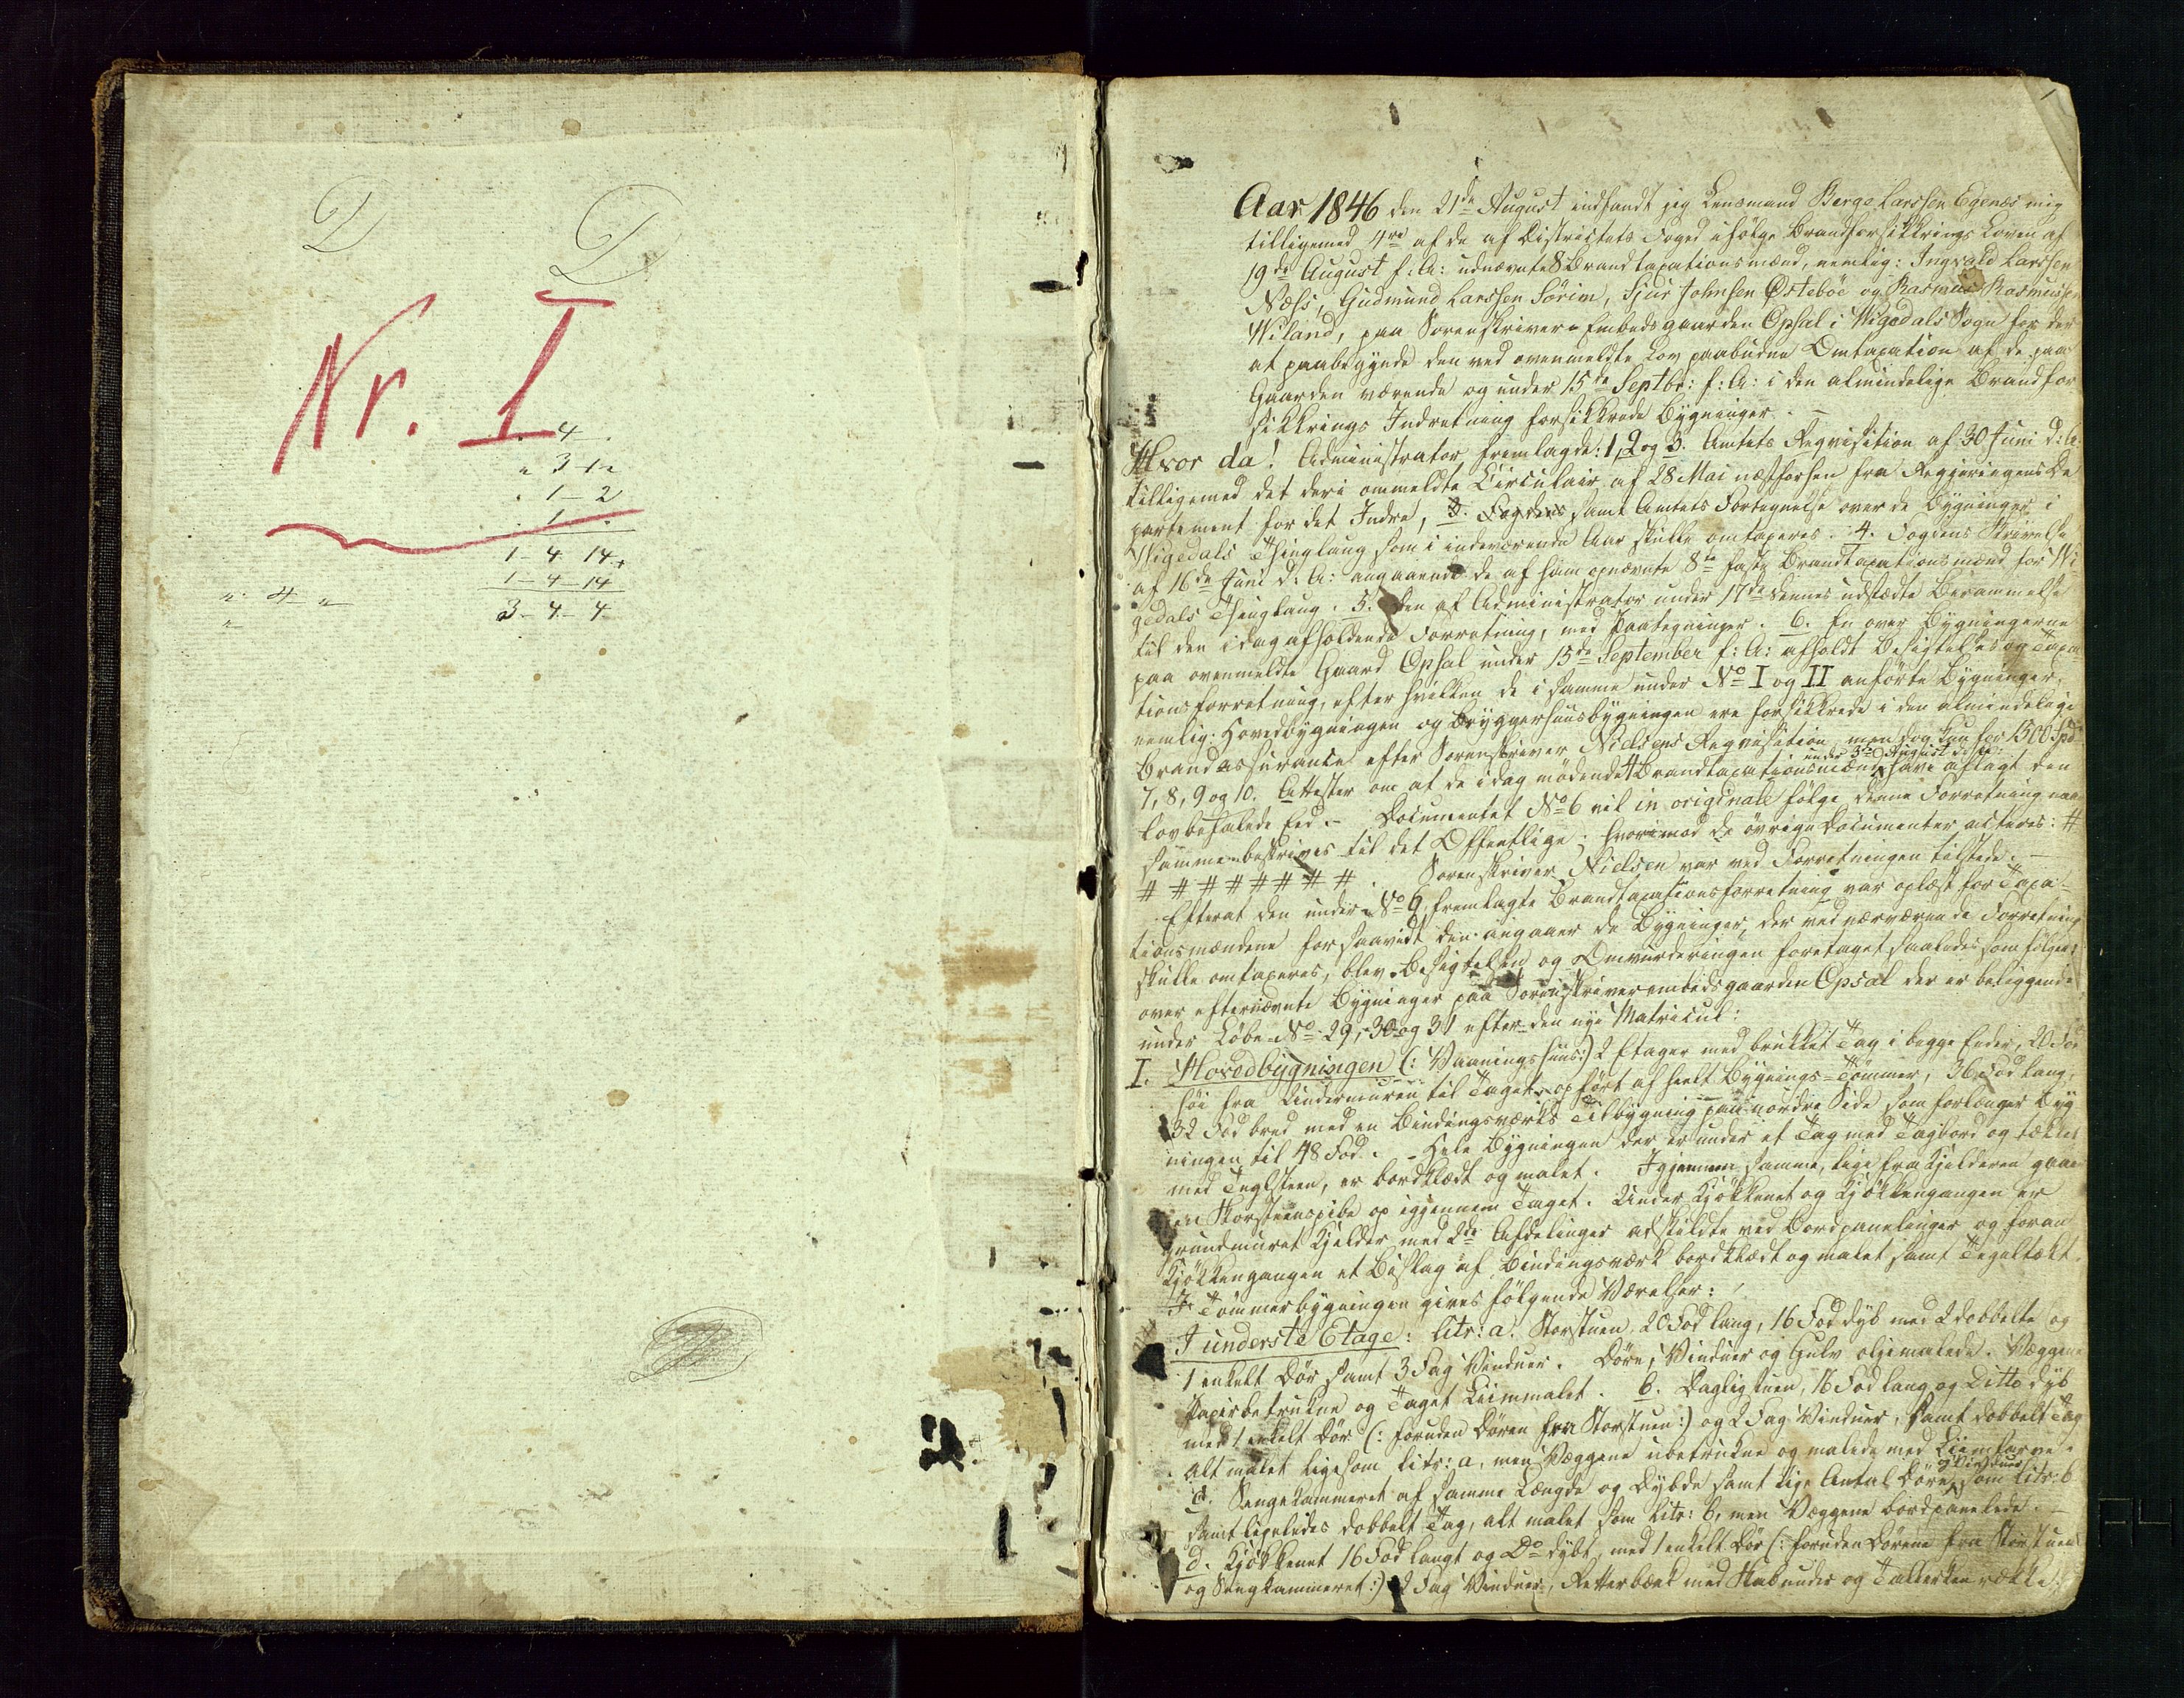 D D
Nr. I
4
" 3 12
1 - 2
1
1 - 4 14
1 - 4 - 14
" 4 "
3 - 4 - 4
"
Aar 1846 den 21de August indfandt jeg Lensmand Berge Larssen Egenæs mig
tilligemed 4re af de af Districtets Foged ifølge Brandforsikkrings Loven af
19de August f: A: udnævnte 8 Brandtaxationsmænd, nemlig: Ingvald Larssen
Næss, Gudmund Larssen Sörim, Siur Johnsen Østeböe og Rasmus Rasmussen
Wiland, paa Sorenskriver-Embedsgaarden Opsal i Wigedals Sogn for der
at paabegynde den ved ovenmeldte Lov paabudne Omtaxation af de paa
Gaarden værende og under 15de Septbr: f: A: i den almindelige Brandfor
sikkrings Indretning forsikkrede Bygninger. -
Hvor da! Administrator fremlagde: 1, 2 og 3. Amtets Reqvisition af 30 Juni d: A:
tilligemed det deri ommeldte Circulair af 28 Mai næstforhen fra Regjeringens De
partement for det Indre, samt Amtets Fortegnelse over de Bygninger i
Wigedals Thinglaug som i indeværende Aar skulle omtaxeres. 4. Fogdens Skrivelse
af 16de Juni d: A: angaaende de af ham opnævnte 8te faste Brandtaxationsmænd for Wi
gedals Thinglaug. 5. Den af Administrator under 17de dennes udstædte Berammelse
til den idag afholdende Forretning, med Paategninger. 6. En over Bygningerne
paa ovenmeldte Gaard Opsal under 15de September f: A: afholdt Besigtelses og Taxa-
tionsforretning, efter hvilken de i samme under No I og II anförte Bygninger,
nemlig: Hovedbygningen og Bryggerhuusbygningen ere forsikkrede i den almindelige
Brandassurance efter Sorenskriver Nielsens Reqvisition, men dog kun for 1300 Spd
under 3die August d: A:
7, 8, 9 og 10. Attester om at de idag mödende 4 Brandtaxationsmænd have aflagt den
lovbefalede Eed. - Documentet No 6 vil in originale følge denne Forretning naar
samme beskrives til det Offentlige; hvorimod de övrige Documenter acteres: #
# # # # # # # #. Sorenskriver Nielsen var ved Forretningen tilstede. -
Efterat den under No 6 fremlagte Brandtaxationsforretning var oplæst for Taxa-
tionsmændene forsaavidt den angaaer de Bygninger, der ved nærværende Forretning
skulle omtaxeres, blev Besigtelsen og Omvurderingen foretaget saaledes som følger:
over efternævnte Bygninger paa Sorenskriverembedsgaarden Opsal der er beliggende
under Löbe-No 29, 30 og 31 efter den nye Matricul:
I. Hovedbygningen (: Vaaningshuus:) 2 Etager med brukket Tag i begge Ender, 20 Fod
höi fra Undermuren til Taget, opfört af heelt Bygnings-Tömmer, 36 Fod lang,
32 Fod bred med en Bindingsværks Tilbygning paa nordre Side som forlænger Byg
ningen til 48 Fod. - Hele Bygningen der er under et Tag med Tagbord og tækket
med Teglsteen, er bordklædt og malet. Igjennem samme, lige fra Kjelderen gaar
en Skorsteenspibe op igjennem Taget. Under Kjökkenet og Kjökkengangen er
grundmuret Kjelder med 2de Afdelinger adskildte ved Bordpanelinger og foran
Kjökkengangen et Bislag af Bindingsværk bordklædt og malet samt Tegeltækt.
I Tömmerbygningen gives fölgende Værelser:
I underste Etage: Litr: a. Storstuen 20 Fod lang, 16 Fod dyb med 2 dobbelte og
1 enkelt Dör samt 3 Fag Vinduer. Döre, Vinduer og Gulv oljemalede. Væggene
Papirbetrukne og Taget Liimmalet. b. Dagligstuen, 16 Fod lang og Ditto dyb
med 1 enkelt Dör (: foruden Dören fra Storstuen :) og 2 Fag Vinduer, samt dobbelt Tag
alt malet ligesom Litr: a, men Væggene ubetrukne og malede med Liimfarve.
og Vinduer
c. Sengekammeret af samme Længde og Dybde samt lige Antal Döre som Litr: b
samt ligeledes dobbelt Tag, alt malet som Litr: b, men Væggene bordpanelede. -
d. Kjökkenet 16 Fod langt og Do dybt, med 1 enkelt Dör (: foruden Dörene fra Storstuen
og Sengkammeret :) 2 Fag Vinduer, Retterbænk med Skab under og Tallerkenrække